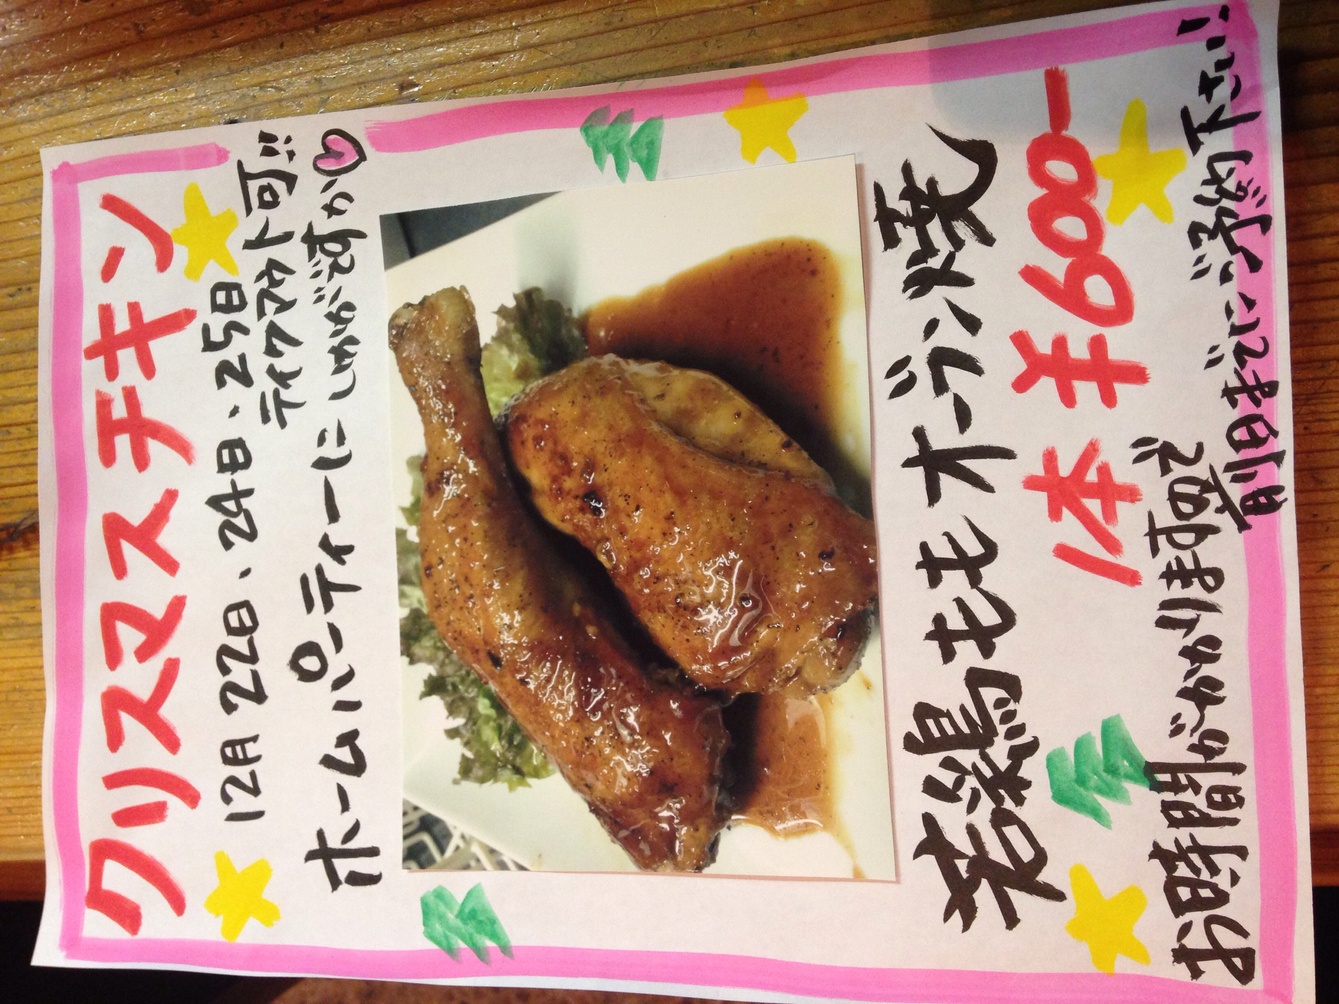 クリスマスチキン
12月22日、24日、25日
テイクアウト可!!
ホームパーティーにいかがですか♡
若鶏モモオーブン焼
1本¥600-
お時間がかかりますので
前日までにご予約下さい!